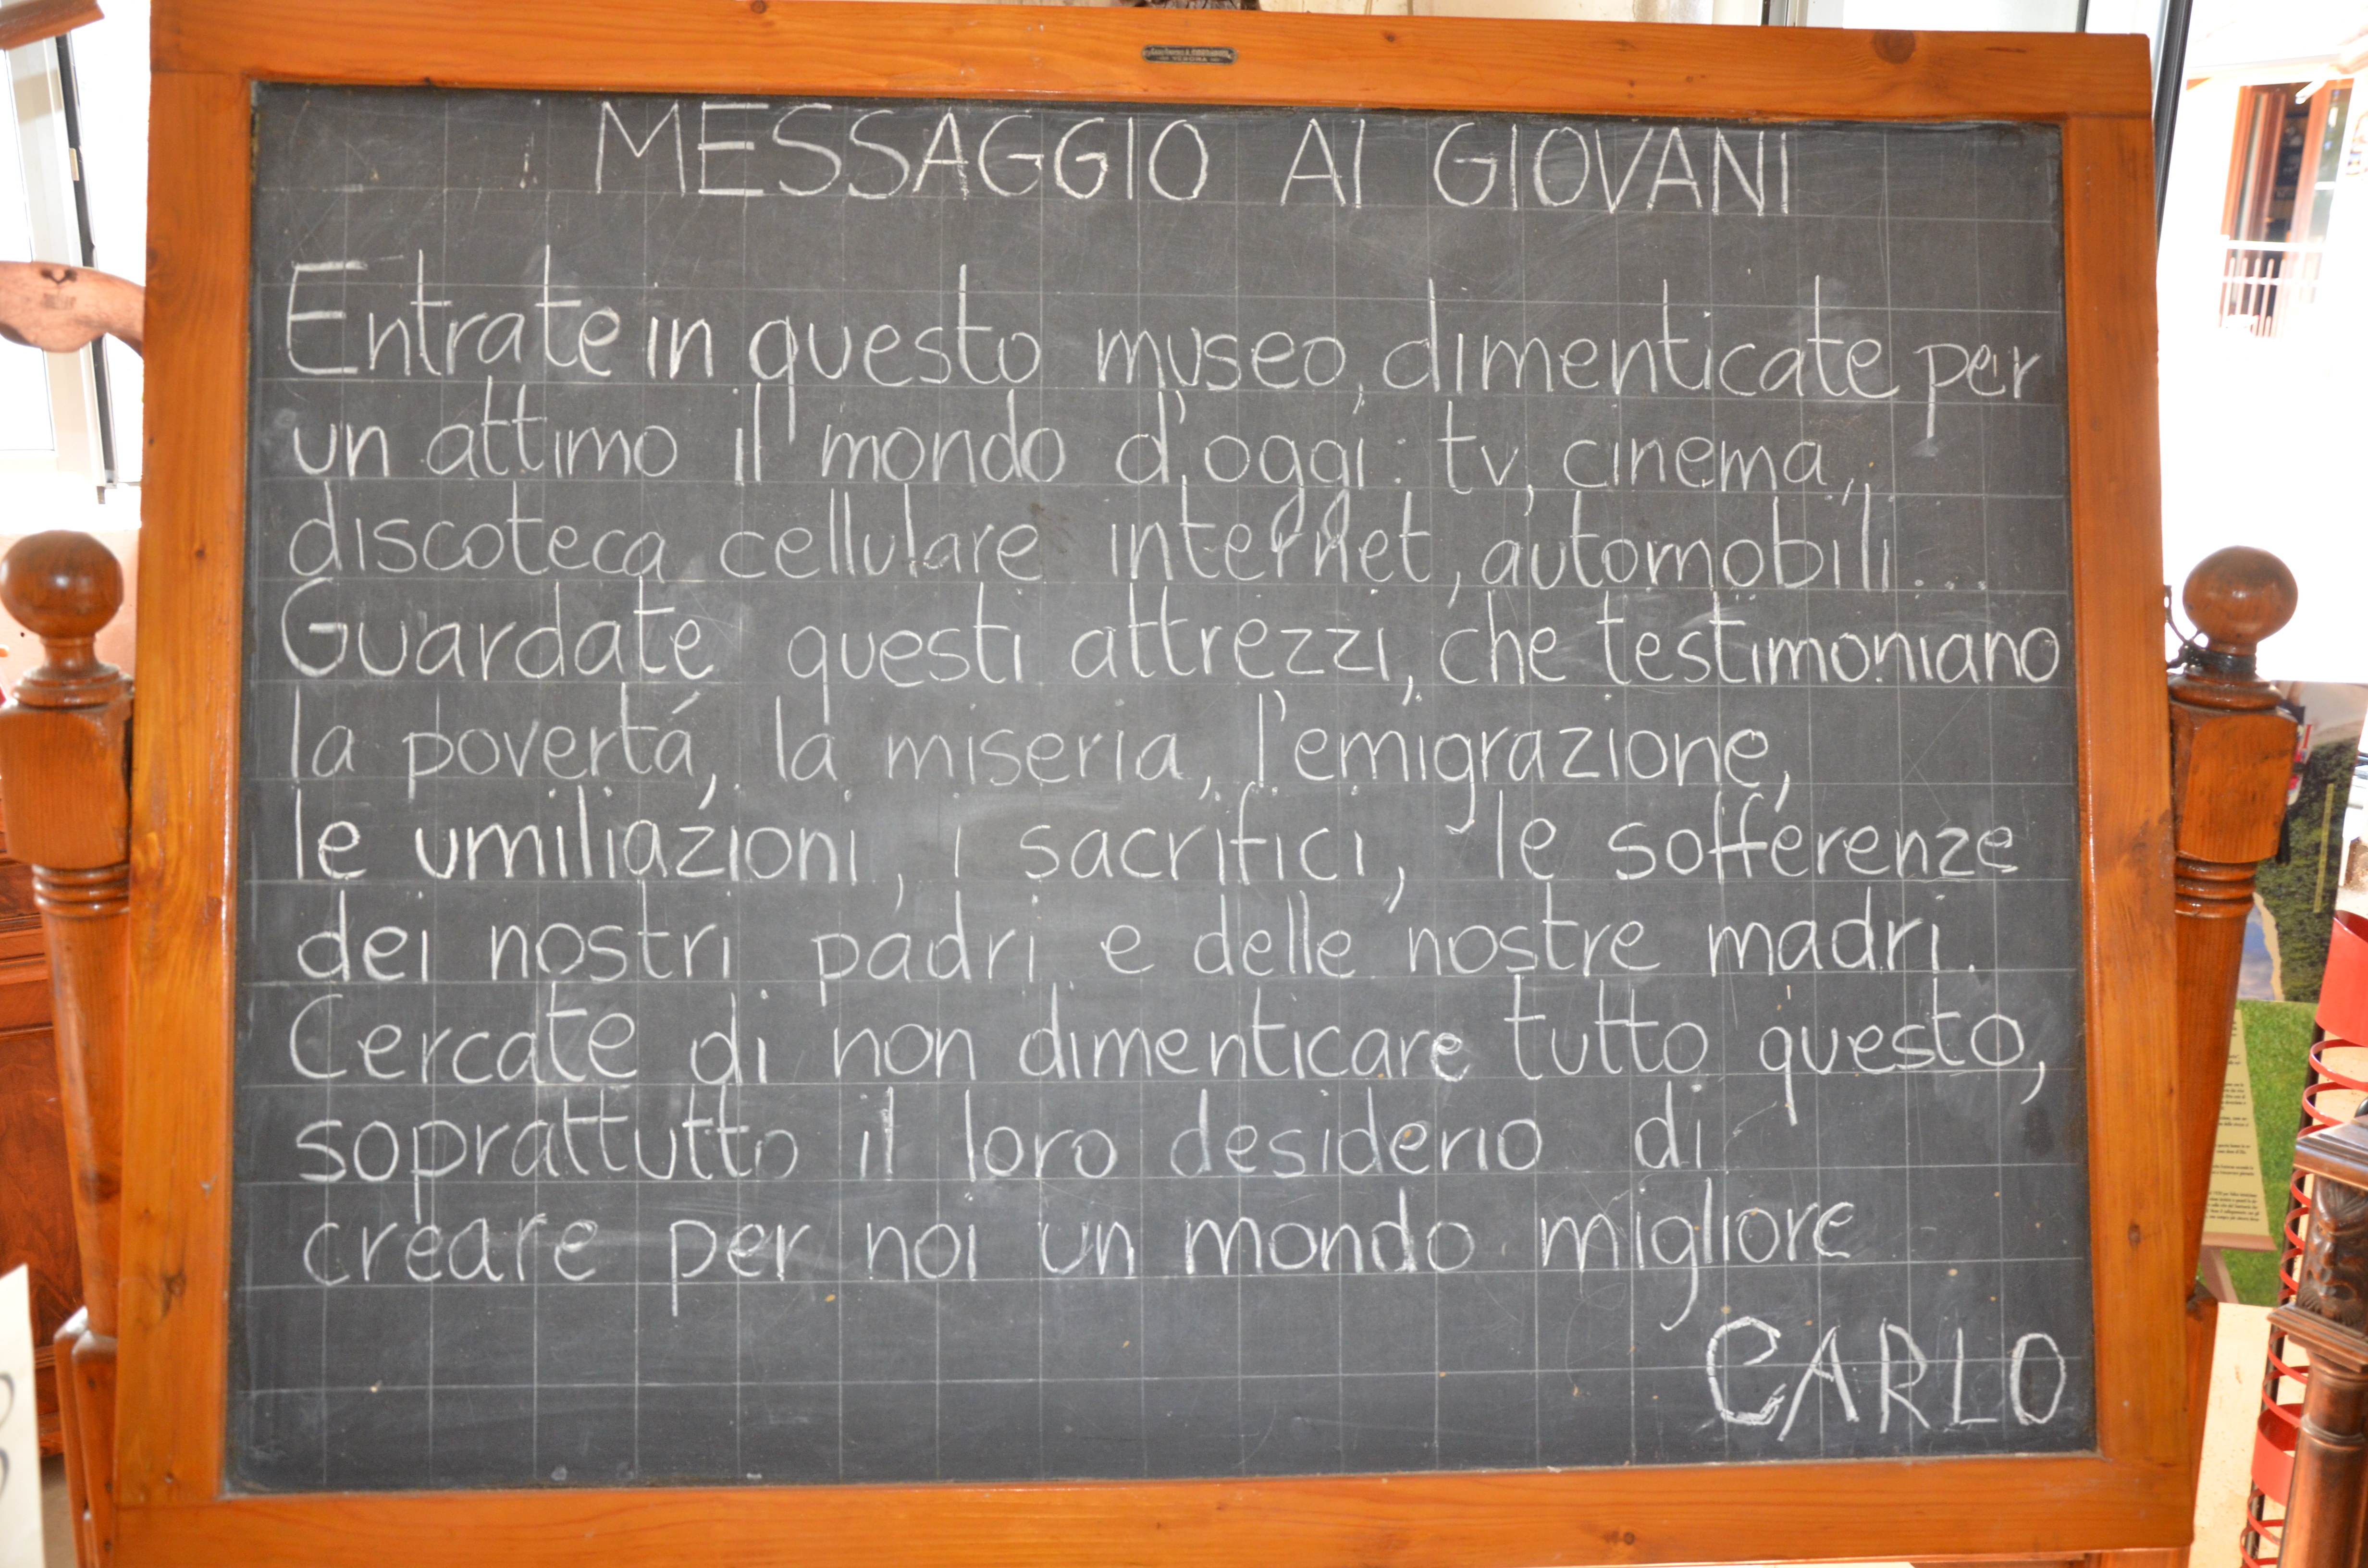 MESSAGGIO AI GIOVANI
Entrate in questo museo, dimenticate per
un attimo il mondo d'oggi: tv, cinema,
discoteca cellulare internet, automobili...
Guardate questi attrezzi, che testimoniano
la povertá, la miseria, l'emigrazione,
le umiliazioni, i sacrifici, le sofferenze
dei nostri padri e delle nostre madri.
Cercate di non dimenticare tutto questo,
soprattutto il loro desiderio di
creare per noi un mondo migliore
CARLO